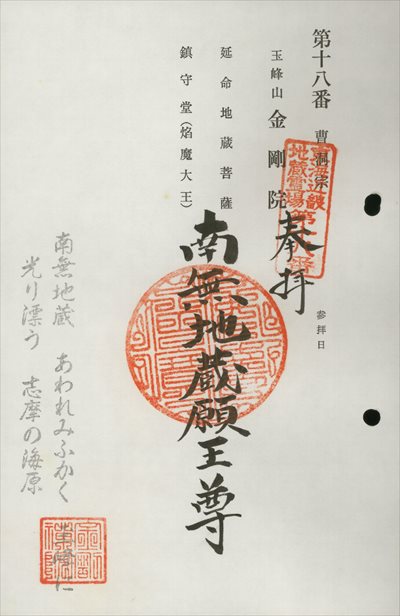 第十八番 曹洞宗
玉峰山 金剛院
延命地蔵菩薩
鎮守堂(焰魔大王)
参拝日
東海近畿
地蔵霊場第十八番
奉拝
南無地蔵願王尊
南無地蔵 あわれみふかく
光り漂う 志摩の海原